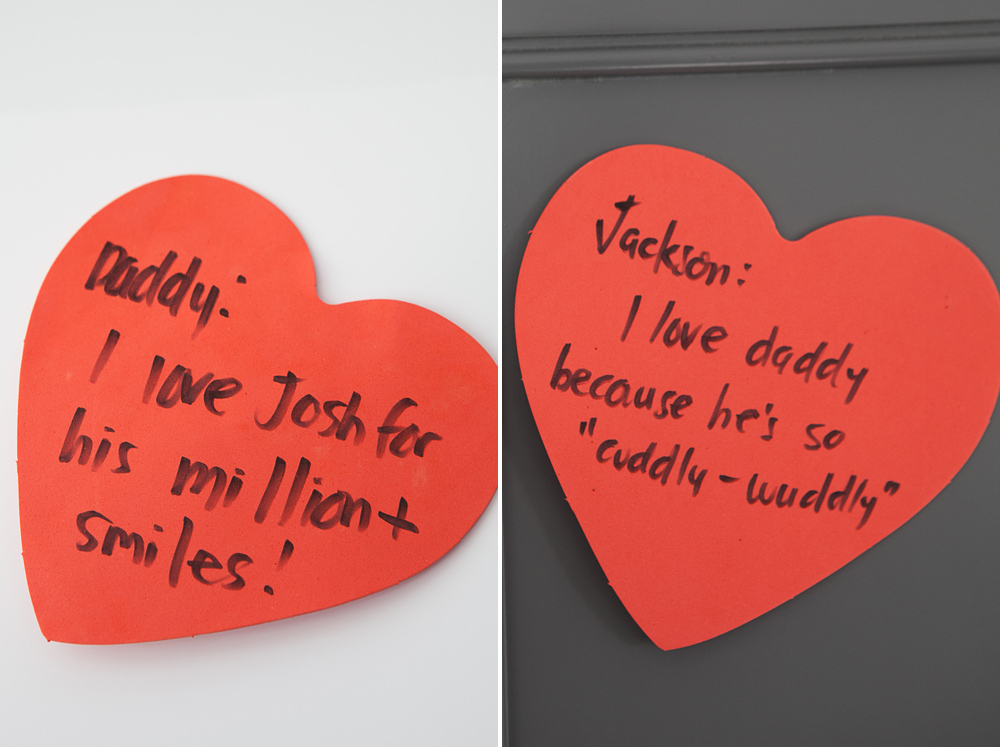 Daddy:
I love Josh for
his million+
smiles!
Jackson:
I love daddy
because he's so
"cuddly-wuddly"